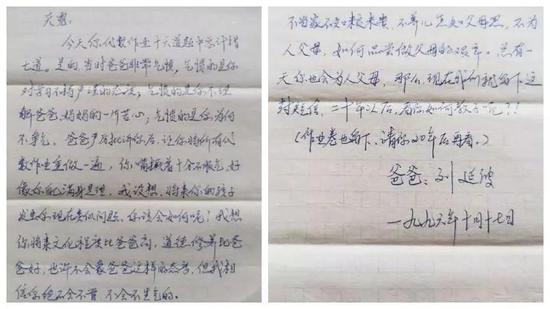 今天你代数作业十六道题中总计错
七道。是的，当时爸爸非常气愤，气愤的是你
对学习不够严谨的态度，气愤的是你不理
解爸爸、妈妈的一片苦心；气愤的是你为何
不争气。爸爸严厉批评你后，让你将所有代
数作业重做一遍，你嘴撅着十分不服气，好
像你的满身是理。我设想，将来你的孩子
发生你现在类似问题，你该会如何呢？我想
你将来文化程度比爸爸高，道德、修养比爸
爸好，也许不会象爸爸这样的态度，但我相
信你绝不会不管，不会不生气的。
不当家不知柴米贵，不养儿不知父母恩，不为
人父母，如何品尝做父母的艰辛。总有一
天你也会为人父母，那么，现在我们就留下这
封短信，二十年以后，看你如何教子呢？！
（作业卷也留下，请你20年后再看。）
爸爸：刘延
一九九六年十月十七日